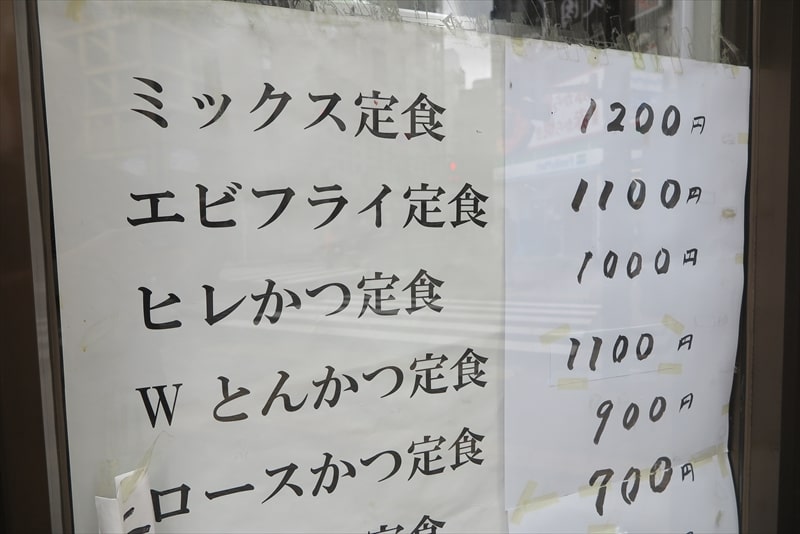 ミックス定食 1200円
エビフライ定食 1100円
ヒレかつ定食 1000円
W とんかつ定食 1100円
ロースかつ定食 900円
定食 700円